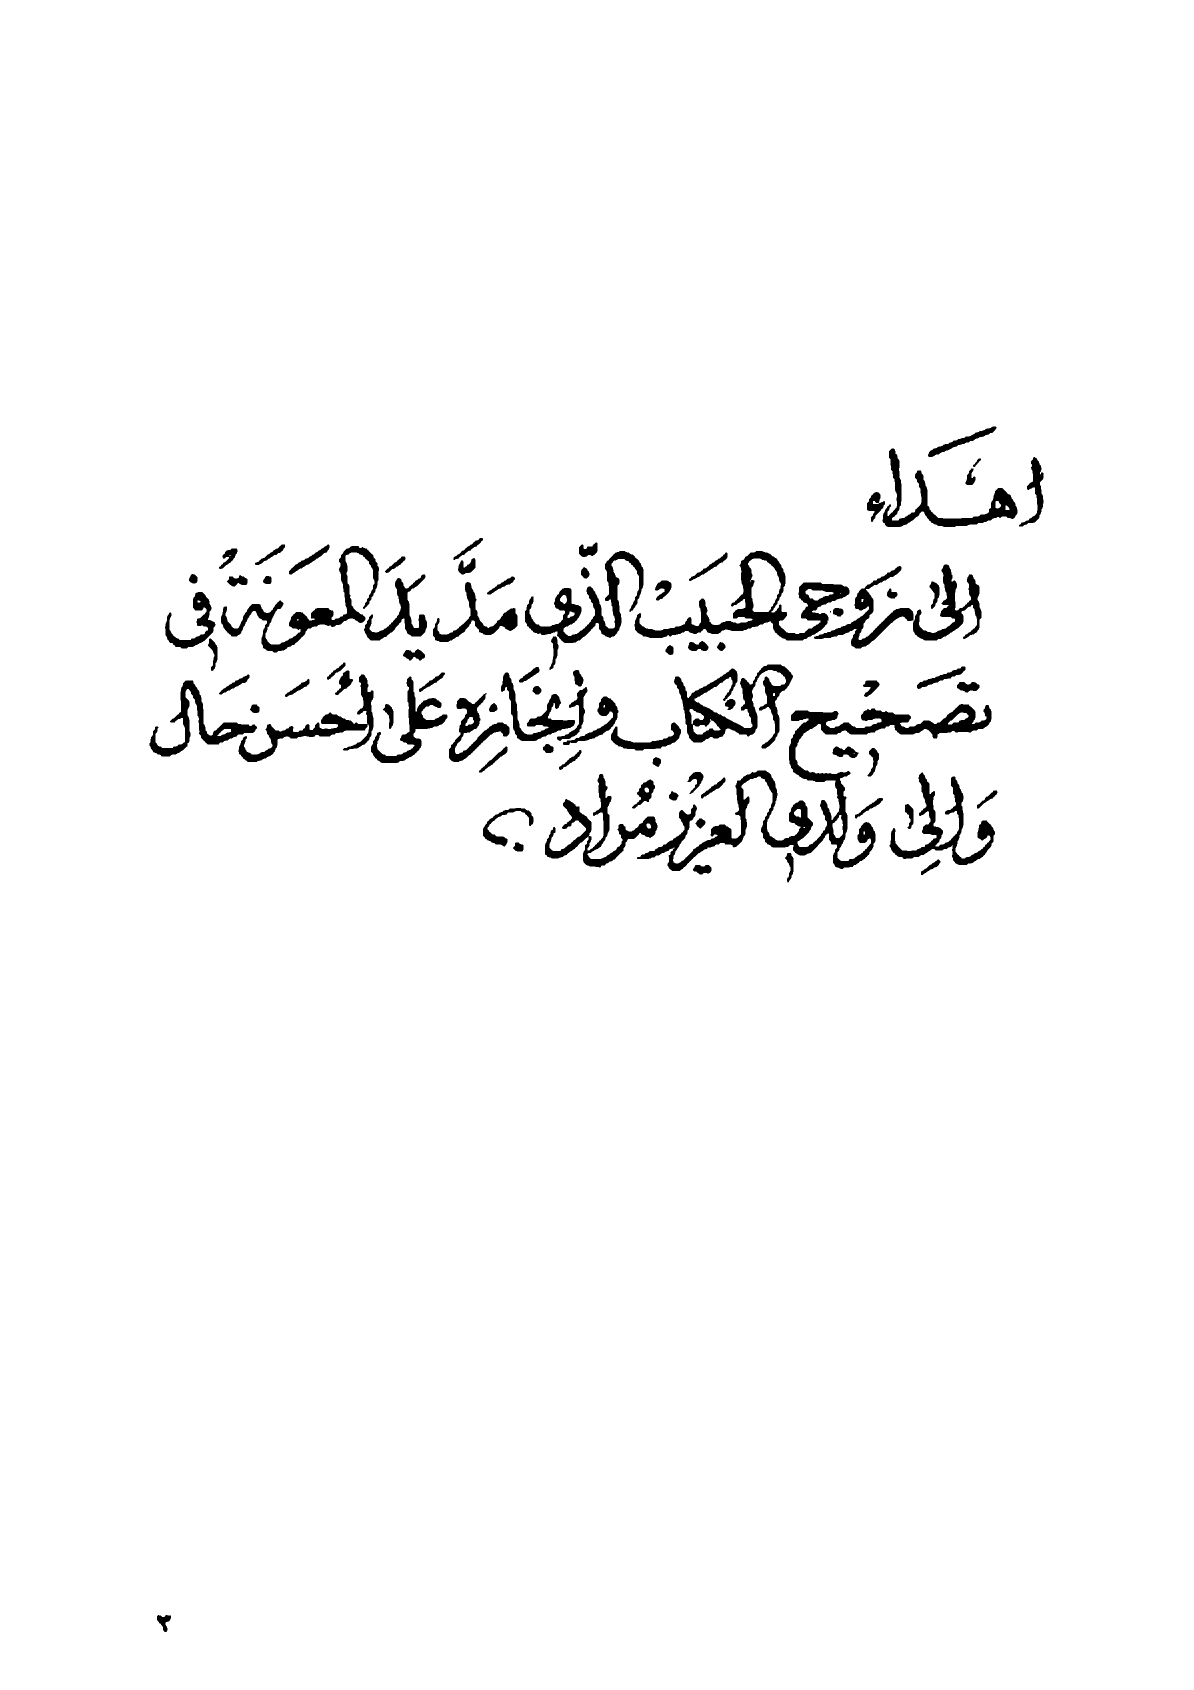 اهداء
الى زوجى الحبيب الذى مدَّ يد المعونة فى
تصحيح الكتاب وإنجازه على احسن حال
وإلى ولدى العزيز مراد
٣